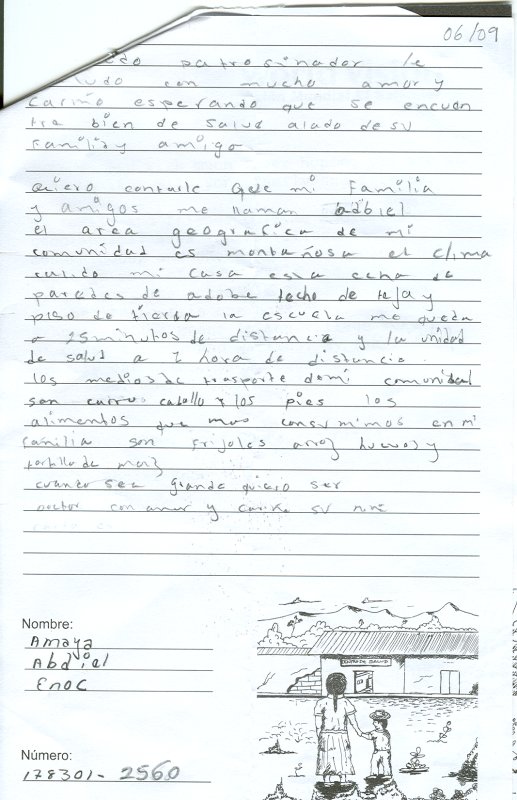 06/09
patrosinador le
con mucho amor y
cariño esperando que se encuen
tre bien de salud alado de su
familia y amigo
quiero contarle que mi familia
y amigos me llaman adbiel
el area geografica de mi
comunidad es montañosa el clima
calido mi casa esta echa de
paredes de adobe techo de teja y
piso de tierra la escuela me queda
a 25 minutos de distancia y la unidad
de salud a 1 hora de distancia
los medios de trasporte de mi comunidad
son carros caballo y los pies los
alimentos que mas consumimos en mi
familia son frijoles arroz huevos y
tortilla de maiz
cuando sea grande quiero ser
doctor con amor y cariño su
Nombre:
Amaya
Abdiel
Enoc
Número:
178301-2560